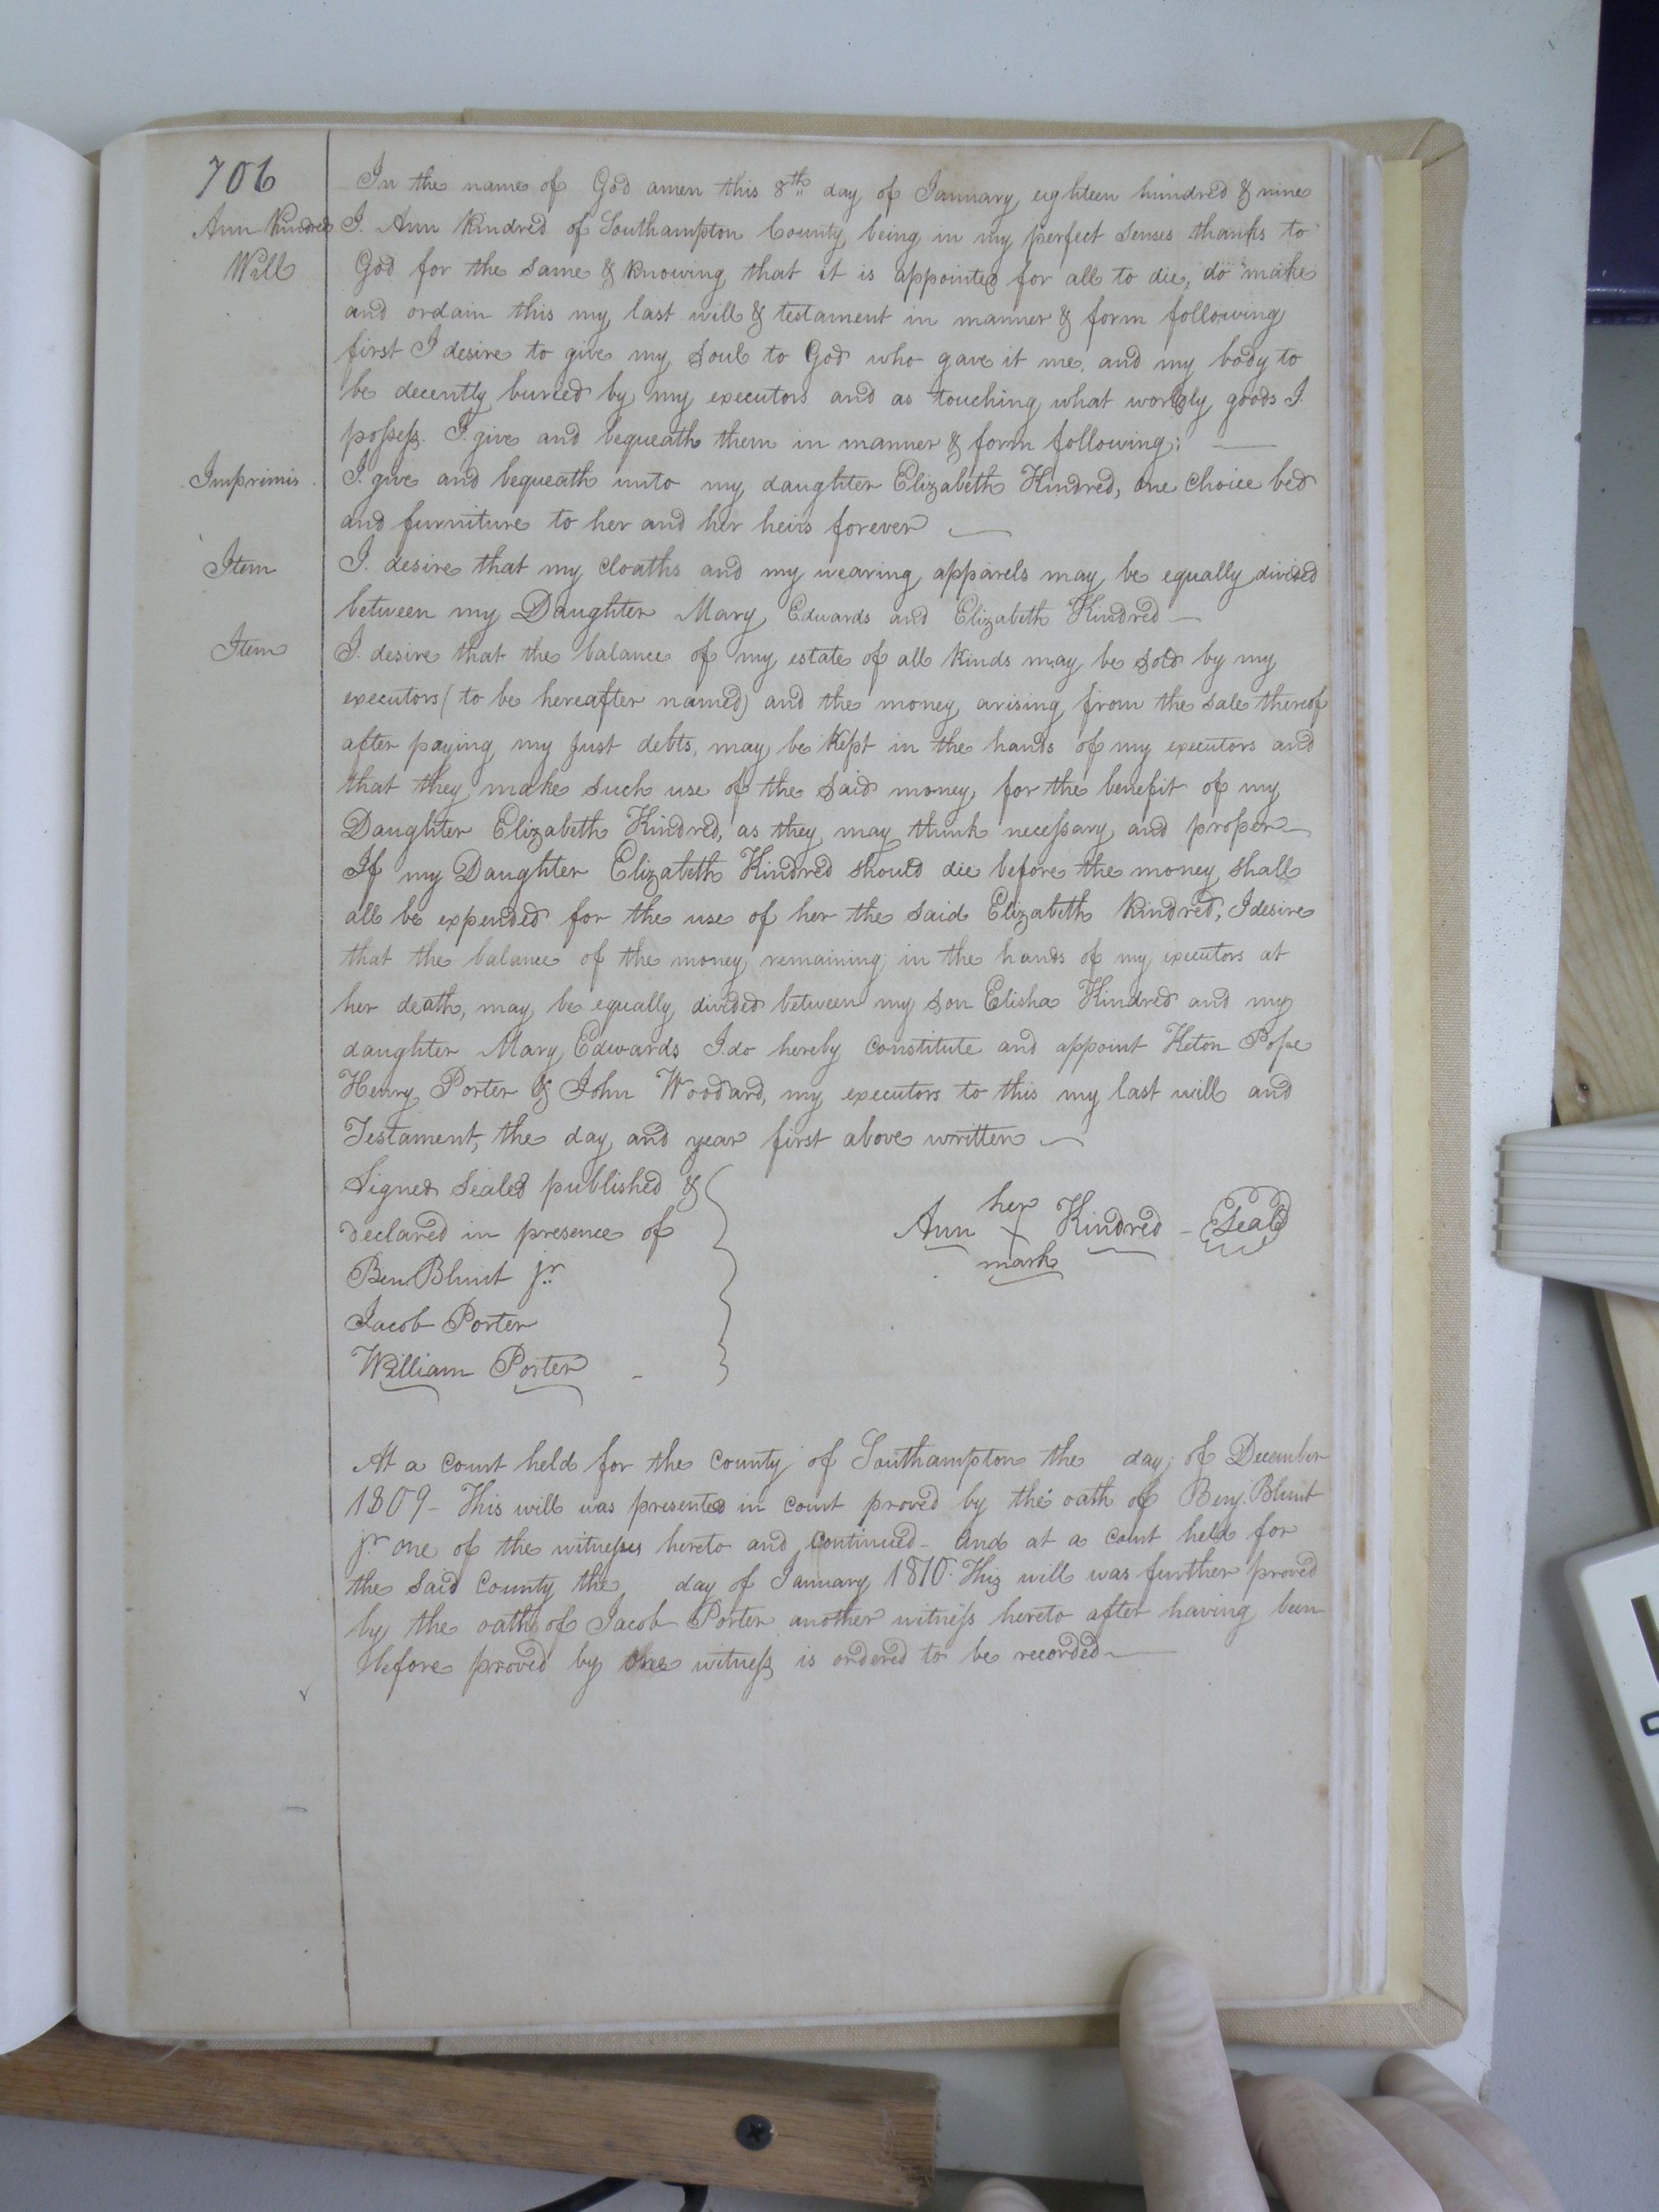 706
Ann Kindred
Will
In the name of God amen this 8th day of January eighteen hundred & nine
I. Ann Kindred of Southampton County being in my perfect senses thanks to
God for the same & knowing that it is appointed for all to die, do make
and ordain this my last will & testament in manner & form following
first I desire to give my soul to God who gave it me, and my body to
be decently buried by my executors and as touching what worldly goods I.
possess. I. give and bequeath them in manner & form following;
Imprimis. I. give and bequeath unto my daughter Elizabeth Kindred, one choice bed
and furniture to her and her heirs forever
Item I. desire that my cloaths and my wearing apparels may be equally divided
between my Daughter Mary Edwards and Elizabeth Kindred
Item I. desire that the balance of my estate of all kinds may be sold by my
executors (to be hereafter named) and the money arising from the sale thereof
after paying my just debts, may be kept in the hands of my executors and
that they make such use of the said money, for the benefit of my
Daughter Elizabeth Kindred, as they may think necessary and proper
If my Daughter Elizabeth Kindred should die before the money shall
all be expended for the use of her the said Elizabeth Kindred, I desire
that the balance of the money remaining in the hands of my executors at
her death, may be equally divided between my son Elisha Kindred and my
daughter Mary Edwards I do hereby constitute and appoint Keton Pope
Henry Porter & John Woodard, my executors to this my last will and
Testament, the day and year first above written
Signed sealed published &
declared in presence of
Ben. Blunt jr
Jacob Porter
William Porter
her
Ann X Kindred - Seal
mark
At a court held for the county of Southampton the day of December
1809 - This will was presented in court proved by the oath of Benj. Blunt
jr one of the witnesses hereto and continued - and at a court held for
the said county the day of January 1810. This will was further proved
by the oath of Jacob Porter another witness hereto after having been
before proved by one witness is ordered to be recorded